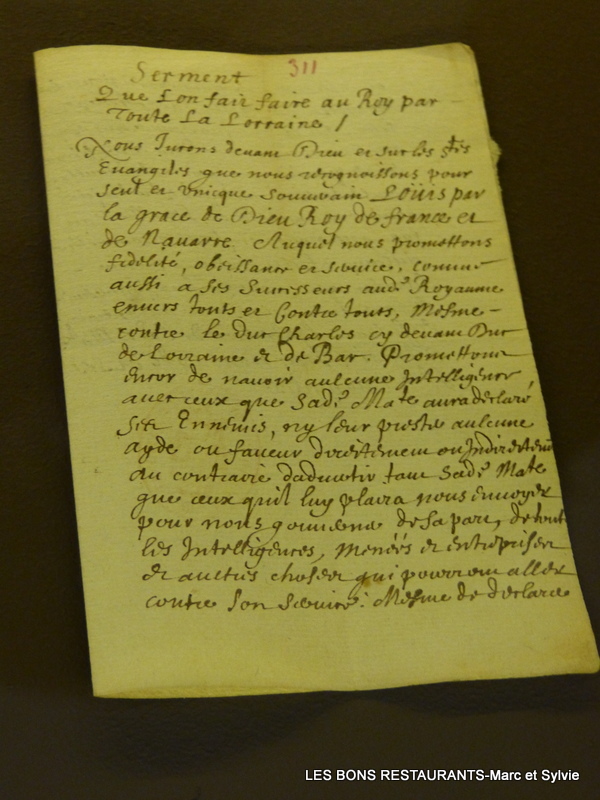 Serment 311
Que Lon fait faire au Roy par
Toute La Lorraine /
Nous Jurons devant Dieu et sur les stes
Evangiles que nous recognoissons pour
seul et unique souverain Loüis par
la grace de Dieu Roy de france et
de Navarre. Auquel nous promettons
fidelité, obeissance et service, comme
aussi a ses successeurs aud. Royaume
envers touts et Contre touts, Mesme
contre le Duc Charles cy devant Duc
de Lorraine et de Bar. Promettons
encor de navoir aulcune Intelligence
avec ceux que Sade. Mate aura declaré
ses Ennemis, ny leur preste aulcune
ayde ou faveur directement ou Indirectemt
au contraire dadvertir tant Sade. Mate
que ceux quil luy plaira nous envoyer
pour nous gouverne de sa part, de tout
les Intelligences, menées et entreprises
et aultres choses qui pourront aller
contre Son Service. Mesme de declare
LES BONS RESTAURANTS-Marc et Sylvie